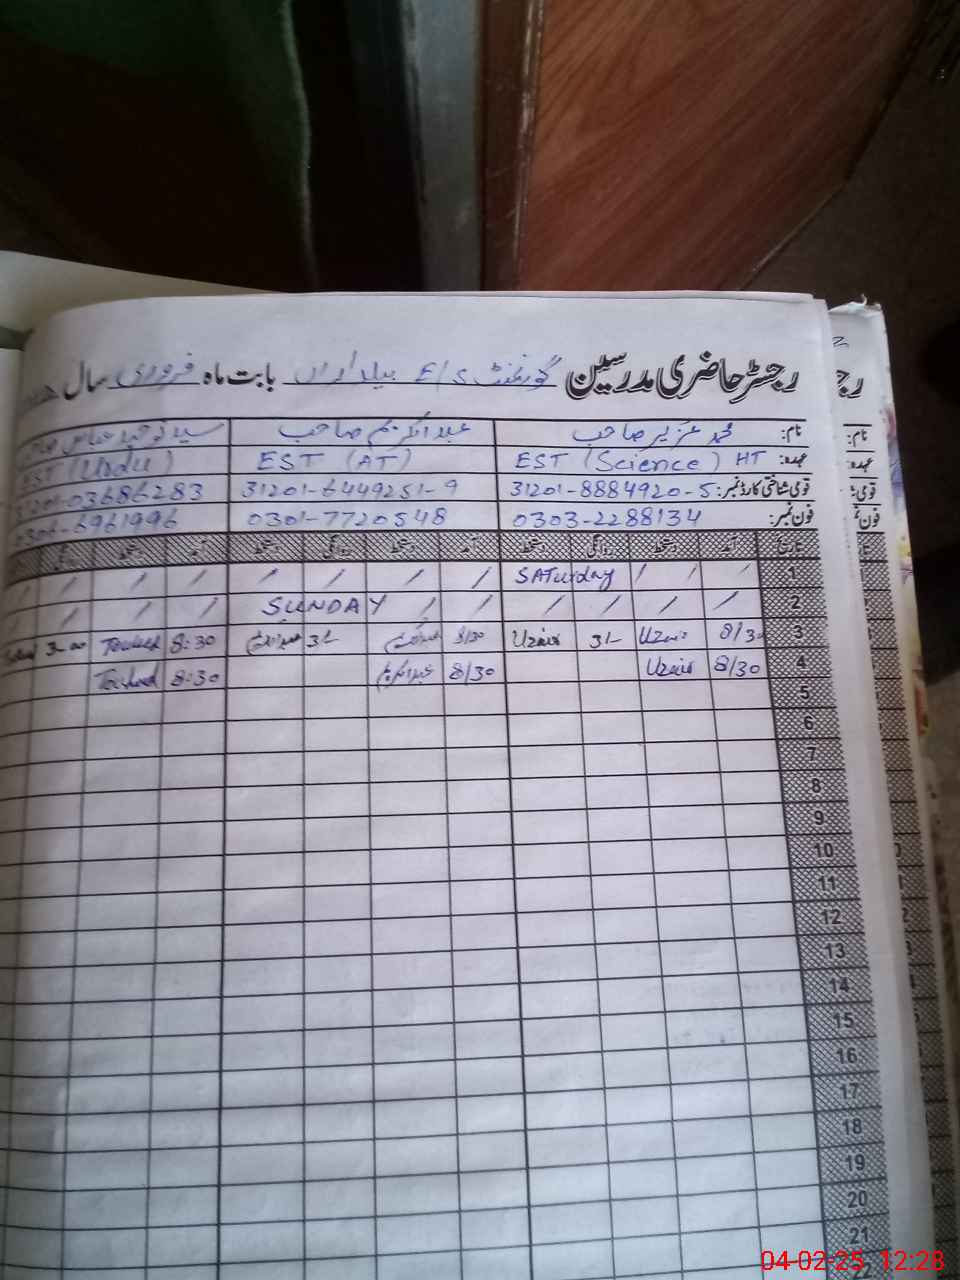 رجسٹر حاضری مدرسین گورنمنٹ E/S بیلداراں بابت ماہ فروری سال
نام: محمد عزیر صاحب عبدالکریم صاحب سید توحید عباس
عہدہ: EST (Science) HT EST (AT) EST (Urdu)
قومی شناختی کارڈ نمبر: 31201-8884920-5 31201-6449251-9 31201-03686283
فون نمبر: 0303-2288134 0301-7720548 0306-6961996
تاریخ آمد دستخط روانگی دستخط آمد دستخط روانگی دستخط آمد دستخط روانگی
1 / / / SATurday / / / / / / / /
2 / / / / / / SUNDAY / / /
3 8/30 Uzair 3/- Uzair 8/30 عبدالکریم 3/- عبدالکریم 8:30 Touheed 3-00
4 8/30 Uzair 8/30 عبدالکریم 8:30 Touheed
5
6
7
8
9
10
11
12
13
14
15
16
17
18
19
20
21
04-02-25 12:28